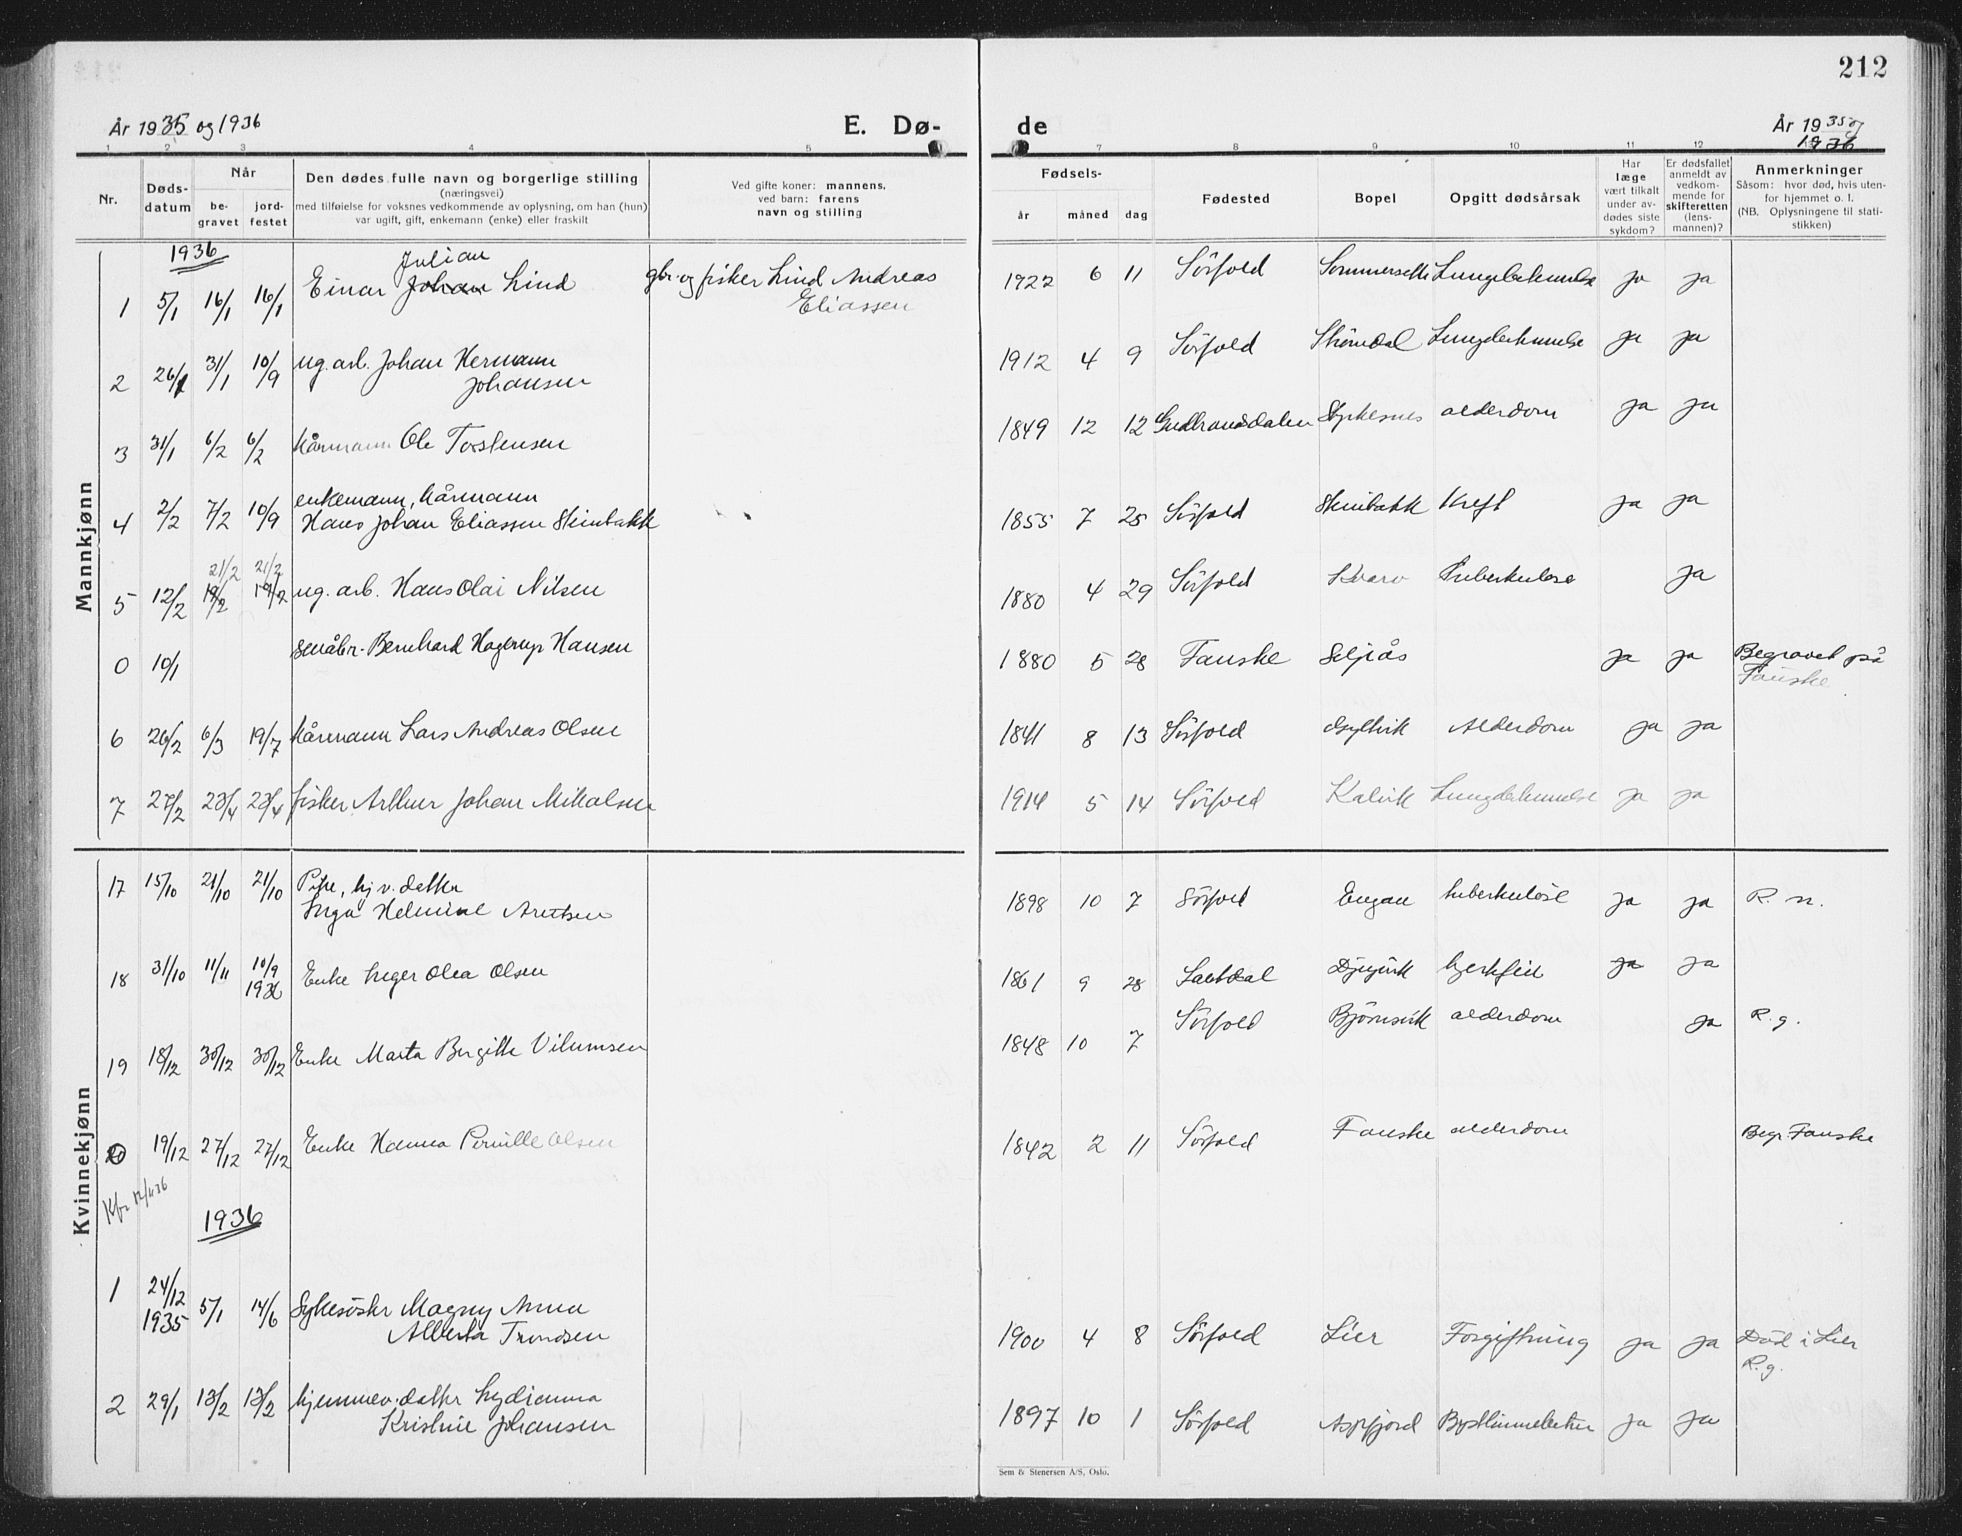 212
År 1935 og 1936
E. Dø-
de
År 1935 og
1936
1 2 3 4 5 7 8 9 10 11 12
Nr.
Døds-
datum
Når
be-
gravet
jord-
festet
Den dødes fulle navn og borgerlige stilling
(næringsvei)
med tilføielse for voksnes vedkommende av oplysning, om han (hun)
var ugift, gift, enkemann (enke) eller fraskilt
Ved gifte koner: mannens,
ved barn: farens
navn og stilling
Fødsels-
år måned dag
Fødested
Bopel
Opgitt dødsårsak
Har
læge
vært tilkalt
under av-
dødes siste
sykdom?
Er dødsfallet
anmeldt av
vedkom-
mende for
skifteretten
(lens-
mannen)?
Anmerkninger
Såsom: hvor død, hvis uten-
for hjemmet o. l.
(NB. Oplysningene til stati-
stikken)
Mannkjønn
1936
Julian
1 5/1 16/1 16/1 Einar Johan Lind gbr. og fisker Lind Andreas
Eliassen
1922 6 11 Sörfold Lungebetennelse ja ja
2 26/1 31/1 10/9 ug. arb. Johan Hermann
Johansen
1912 4 9 Sörfold ja ja
3 31/1 6/2 6/2 Kårmann Ole Torstensen
1849 12 12 Gudbrandsdalen Styrkesnes alderdom ja ja
4 2/2 7/2 10/9 enkemann, kårmann
Hans Johan Eliassen Steinbakk
1855 7 25 Sörfold Steinbakk Kreft ja ja
21/2 21/2
5 12/2 19/2 19/2 ug. arb. Hans Olai Nilsen
1880 4 29 Sörfold Kvarv Tuberkulose ja
0 10/1 småbr. Bernhard Hagerup Hansen
1880 5 28 Fauske Seljeås ja ja Begravet på
Fauske
6 26/2 6/3 19/7 Kårmann Lars Andreas Olsen
1841 8 13 Sörfold Gyltvik Alderdom ja ja
7 27/2 23/4 23/4 fisker Arthur Johan Mikalsen
1914 5 14 Sörfold Kalvik Lungebetennelse ja ja
Kvinnekjønn
17 15/10 21/10 21/10 Pike, hj v. datter
Inga Helmine Arntsen
1898 10 7 Sörfold Engan tuberkulose ja ja R. n.
18 31/10 11/11 10/9
1936 Enke Inger Olea Olsen
1861 9 28 Saltdal Djupvik hjertefeil ja ja
19 18/12 30/12 30/12 Enke Marta Bergitte Vilumsen
1848 10 7 Sörfold Björnsvik alderdom ja R. g.
0 19/12 27/12 27/12 Enke Hanna Pernille Olsen
1842 2 11 Sörfold Fauske alderdom Begr. Fauske
1936
1 24/12
1935 5/1 14/6 Sykesöster Magny Anna
Alberta Trondsen
1900 4 8 Sörfold Lier Forgiftning ja ja Död i Lier
R. g.
2 29/1 13/2 13/2 hjemmev. datter Lydianna
Kristine Johansen
1897 10 1 Sörfold Aspfjord Brysthinnebeten ja ja
Sem & Stenersen A/S, Oslo.